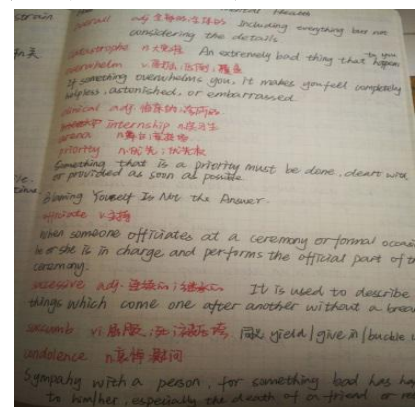 strain
overall adj 全部的;全体的 Including everything but not
considering the details
catastrophe n 大灾难 An extremely bad thing that happens
to you
overwhelm v
If something overwhelms you, it makes you fell completely
helpless, astonished, or embarrassed.
clinical adj 临床的;
internship n 实习生
arena n
priority n 优先;优先权
Something that is a priority must be done, dealt with
or provided as soon as possible.
Blaming Yourself Is Not the Answer.
officiate v 主持
When someone officiates at a ceremony or formal occasi
he or she is in charge and performs the official part of th
ceremony.
adj. 连续的;继承的 It is used to describe
things which come one after another without a brea
succumb vi 屈服; 同义 yield / give in / buckle u
undolence n 哀悼 慰问
Sympahy with a person, for something bad has hap
to him/her, especially the death of a friend or re